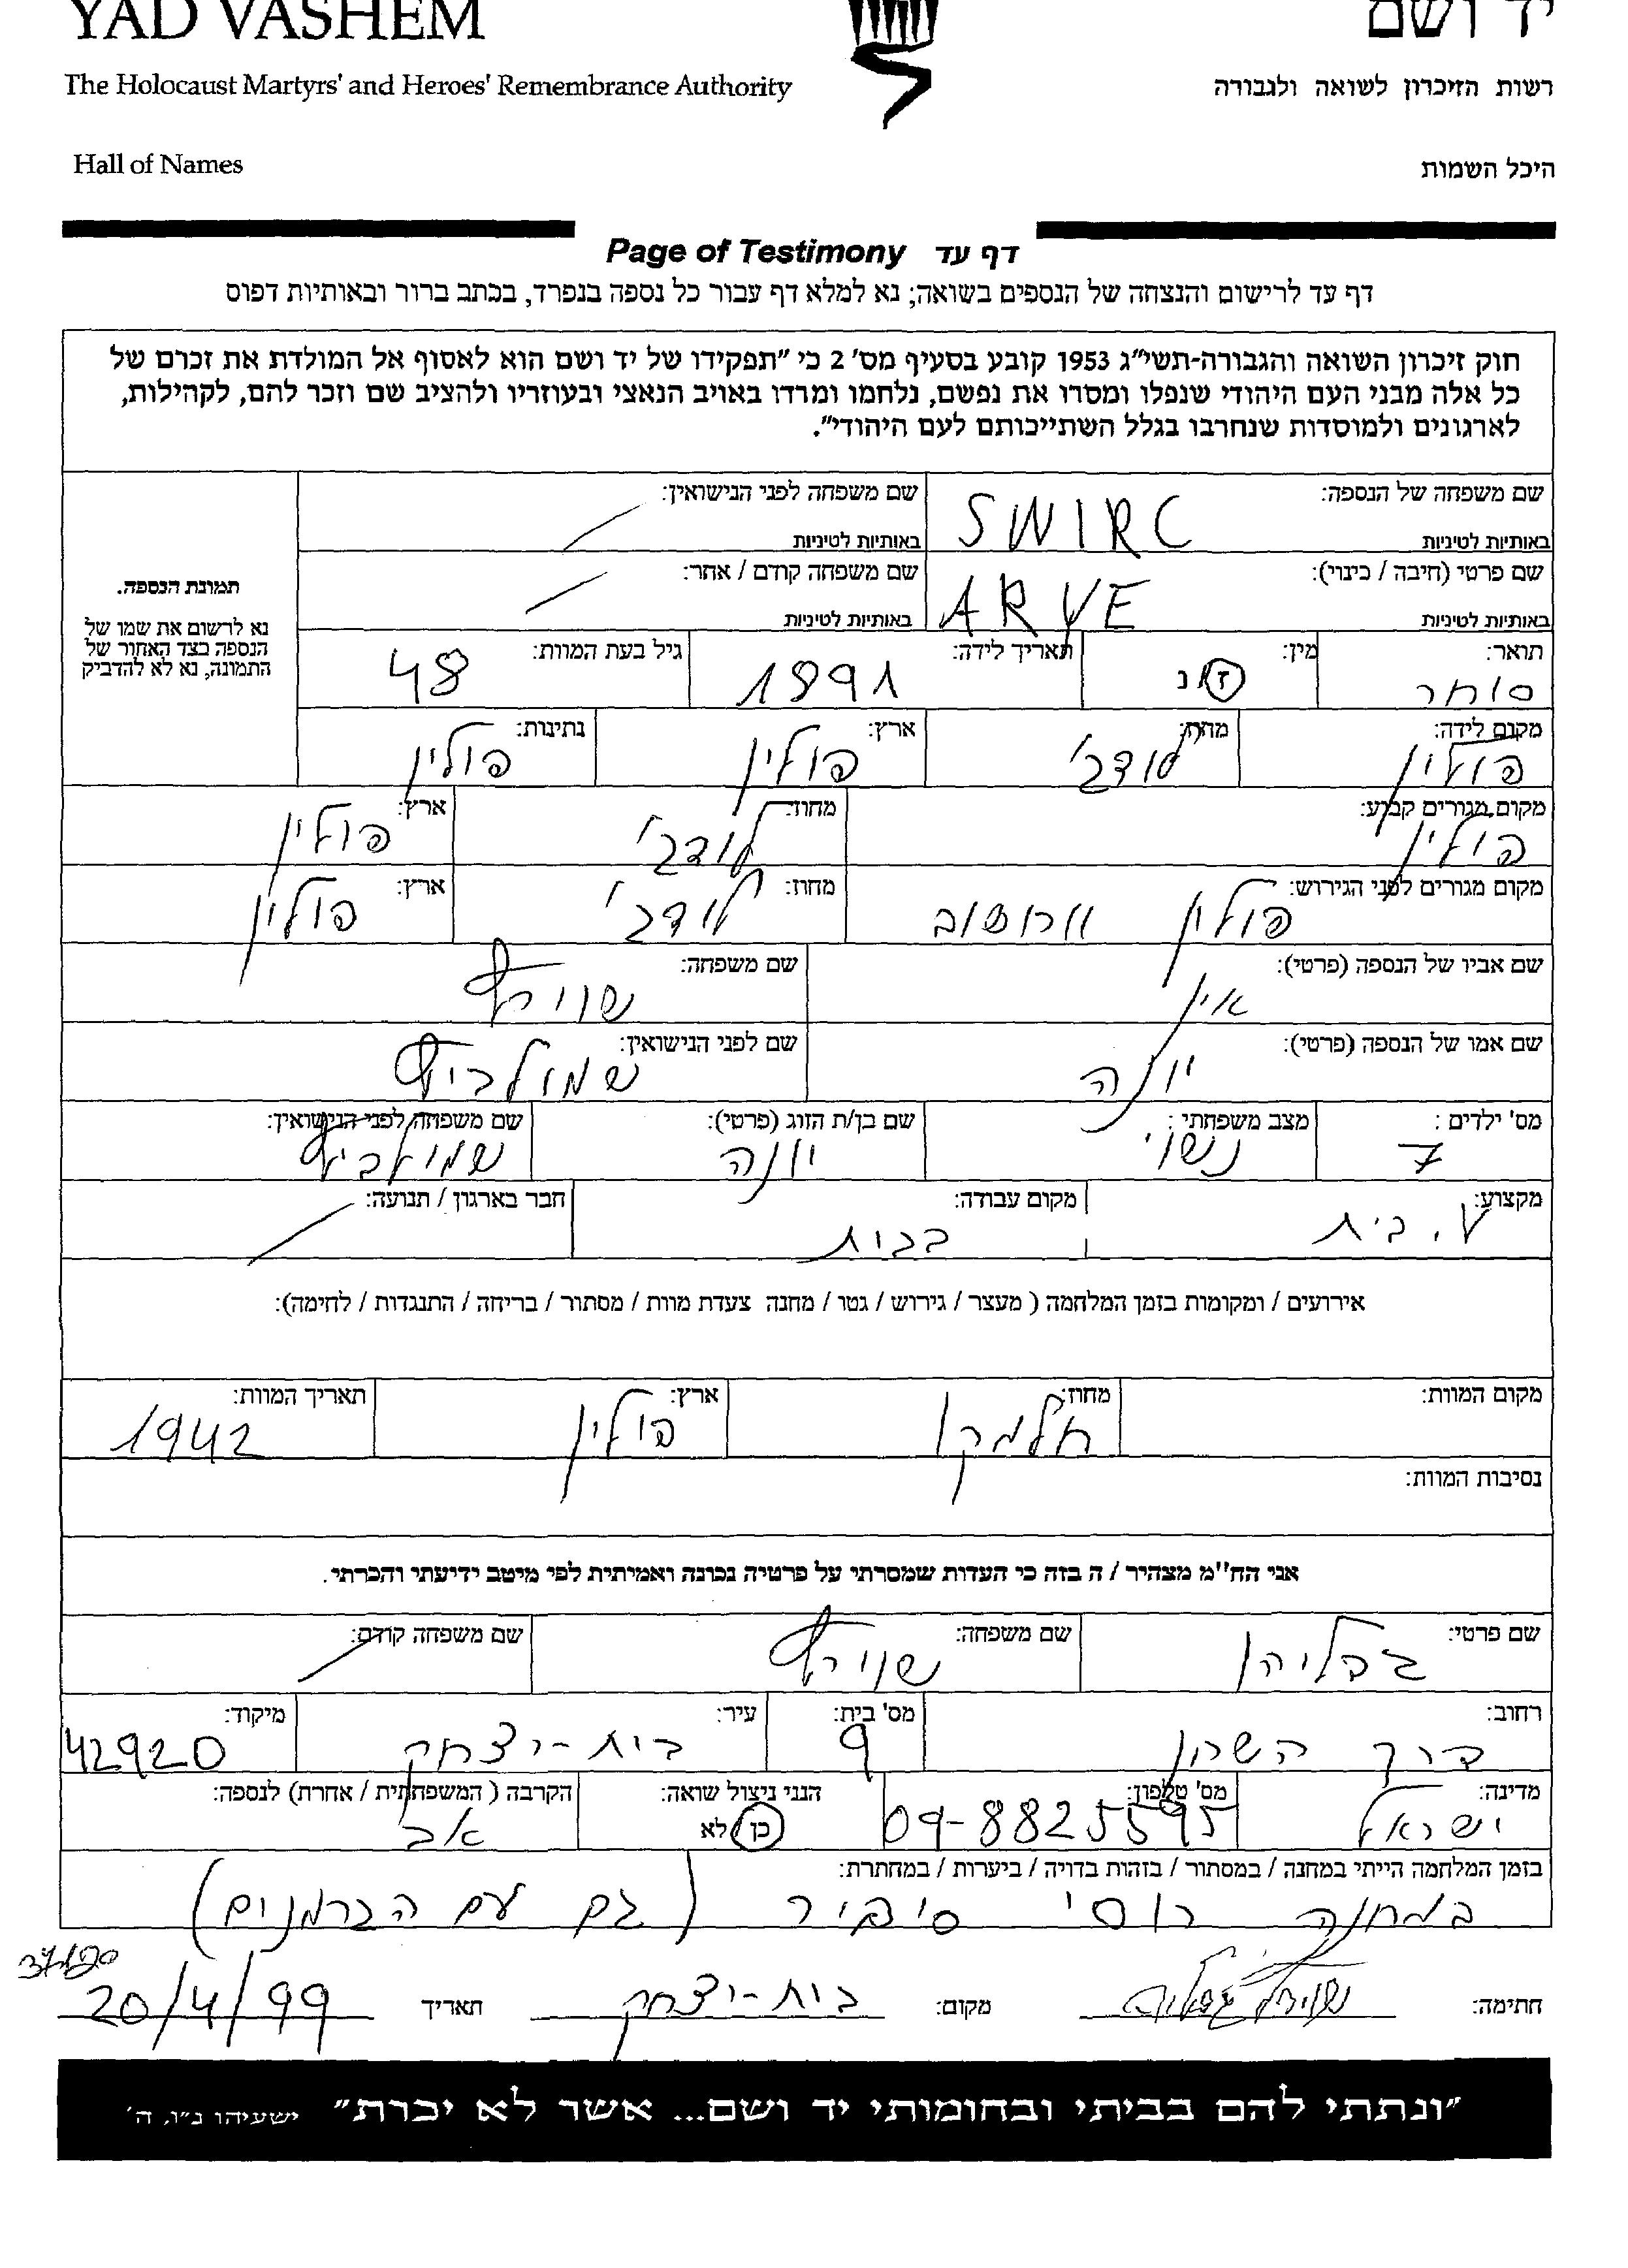 YAD VASHEM יד ושם
The Holocaust Martyrs' and Heroes' Remembrance Authority רשות הזיכרון לשואה ולגבורה
Hall of Names היכל השמות
Page of Testimony דף עד
דף עד לרישום והנצחה של הנספים בשואה; נא למלא דף עבור כל נספה בנפרד, בכתב ברור ובאותיות דפוס
חוק זיכרון השואה והגבורה-תשי"ג 1953 קובע בסעיף מס' 2 כי "תפקידו של יד ושם הוא לאסוף אל המולדת את זכרם של
כל אלה מבני העם היהודי שנפלו ומסרו את נפשם, נלחמו ומרדו באויב הנאצי ובעוזריו ולהציב שם וזכר להם, לקהילות,
לארגונים ולמוסדות שנחרבו בגלל השתייכותם לעם היהודי".
שם משפחה של הנספה: SWIRC שם משפחה לפני הנישואין:
באותיות לטיניות באותיות לטיניות
שם פרטי (חיבה / כינוי): ARYE שם משפחה קודם / אחר:
באותיות לטיניות באותיות לטיניות
תמונת הנספה.
נא לרשום את שמו של
הנספה בצד האחור של
התמונה, נא לא להדביק
תואר: סוחר מין: ז/נ תאריך לידה: 1891 גיל בעת המוות: 48
מקום לידה: פולין מחוז: לודג' ארץ: פולין נתינות: פולין
מקום מגורים קבוע: פולין מחוז: לודג' ארץ: פולין
מקום מגורים לפני הגירוש: פולין מחוז: לודג' ארץ: פולין
שם אביו של הנספה (פרטי): אין שם משפחה: שוירץ
שם אמו של הנספה (פרטי): יונה שם לפני הנישואין: שמולביץ
מס' ילדים : 7 מצב משפחתי : נשוי שם בן/ת הזוג (פרטי): יונה שם משפחה לפני הנישואין: שמולביץ
מקצוע: ע. בית מקום עבודה: בבית חבר בארגון / תנועה:
אירועים / ומקומות בזמן המלחמה ( מעצר / גירוש / גטו / מחנה צעדת מוות / מסתור / בריחה / התנגדות / לחימה):
מקום המוות: מחוז: חלמנו ארץ: פולין תאריך המוות: 1942
נסיבות המוות:
אני הח"מ מצהיר / ה בזה כי העדות שמסרתי על פרטיה נכונה ואמיתית לפי מיטב ידיעתי והכרתי.
שם פרטי: גדליהו שם משפחה: שוירץ שם משפחה קודם:
רחוב: דרך השרון מס' בית: 9 עיר: בית-יצחק מיקוד: 42920
מדינה: ישראל מס' טלפון: 09-8825595 הנני ניצול שואה: כן/לא הקרבה ( המשפחתית / אחרת) לנספה: אב
בזמן המלחמה הייתי במחנה / במסתור / בזהות בדויה / ביערות / במחתרת:
במחנה רוסי סיביר (גם עם הגרמנים)
חתימה: מקום: בית-יצחק תאריך 20/4/99
"ונתתי להם בביתי ובחומותי יד ושם... אשר לא יכרת" ישעיהו נ"ו, ה'